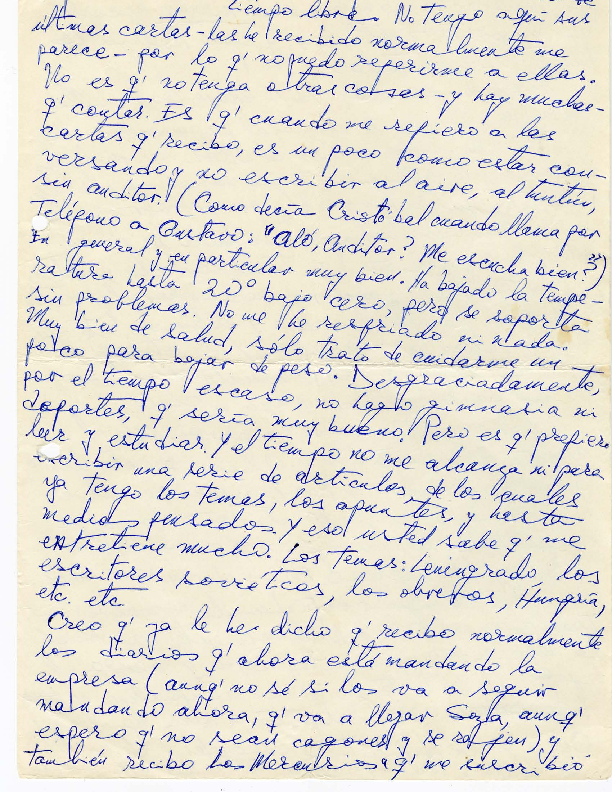 tiempo libre. No tengo aquí sus
ultmas cartas - las he recibido normalmente me
parece - por lo q' no puedo referirme a ellas.
No es q' no tenga otras cosas - y hay muchas -
q' contar. Es q' cuando me refiero a las
cartas q' recibo, es un poco como estar con-
versando y no escribir al aire, al tuntún,
sin auditor. (Como decía Cristóbal cuando llama por
Teléfono a Gustavo: "Aló, Auditor? Me escucha bien?")
En general y en particular muy bien. Ha bajado la tempe-
ratura hasta 20° bajo cero, pero se soporta
sin problemas. No me he resfriado ni nada.
Muy bien de salud, solo trato de cuidarme un
poco para bajar de peso. Desgraciadamente,
por el tiempo escaso, no hago gimnasia ni
deportes, q' sería muy bueno. Pero es q' prefiero
leer y estudiar. Y el tiempo no me alcanza ni para
escribir una serie de artículos de los cuales
ya tengo los temas, los apuntes, y hasta
medios pensados. Y eso usted sabe q' me
entretiene mucho. Los temas: Leningrado, los
escritores soviéticos, los obreros, Hungría,
etc. etc
Creo q' ya le he dicho q' recibo normalmente
los diarios q' ahora está mandando la
empresa (aunq' no sé si los va a seguir
mandando ahora, q' va a llegar aunq'
espero q' no sean cagones y se rajen) y
también recibo los Mercurios q' me suscribió